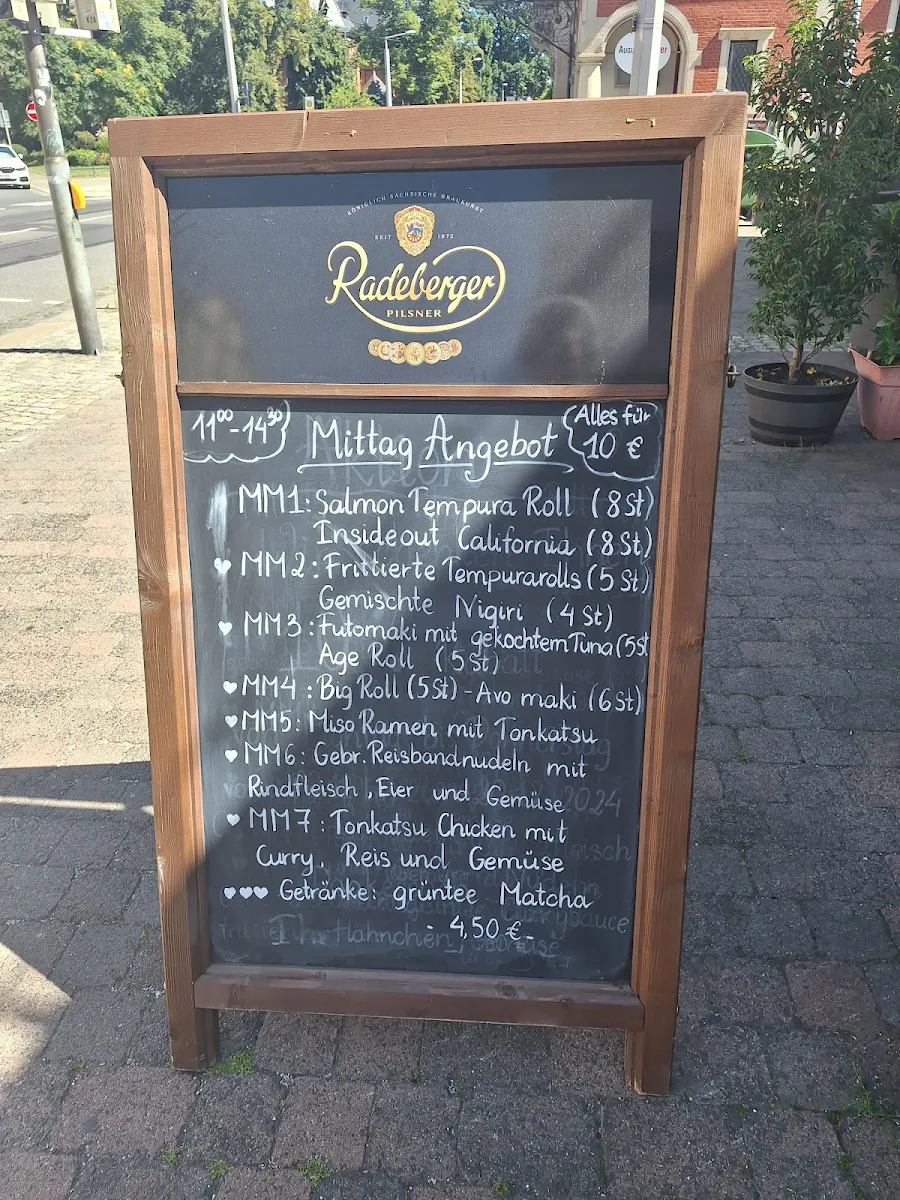 KÖNIGLICH SÄCHSISCHE BRAUKUNST
SEIT 1872
Radeberger
PILSNER
11⁰⁰-14³⁰
Mittag Angebot
Alles für
10 €
MM1: Salmon Tempura Roll (8St)
Insideout California (8 St)
MM2: Frittierte Tempurarolls (5 St)
Gemischte Nigiri (4 St)
MM3: Futomaki mit gekochtem Tuna (5st
Age Roll (5 St)
MM4: Big Roll (5St) - Avo maki (6 St)
MM5: Miso Ramen mit Tonkatsu
MM6: Gebr. Reisbandnudeln mit
Rindfleisch, Eier und Gemüse
MM7: Tonkatsu Chicken mit
Curry, Reis und Gemüse
Getränke: grüntee Matcha
- 4,50 €-